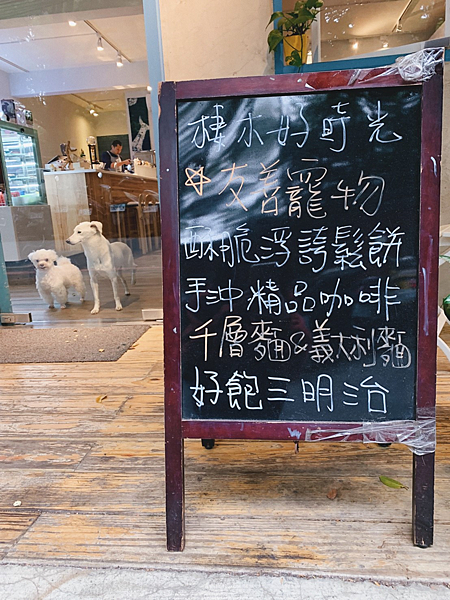 棲木好時光
友善寵物
酥脆浮誇鬆餅
手沖精品咖啡
千層麵&義大利麵
好飽三明治